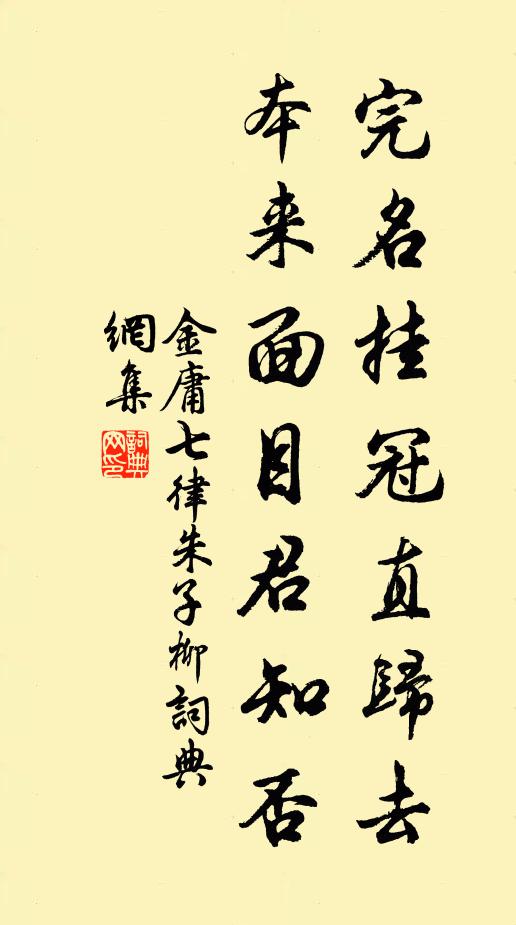 完名挂冠直歸去
本来面目君知否
金庸七律朱子柳詞典
網集
詞典
网印